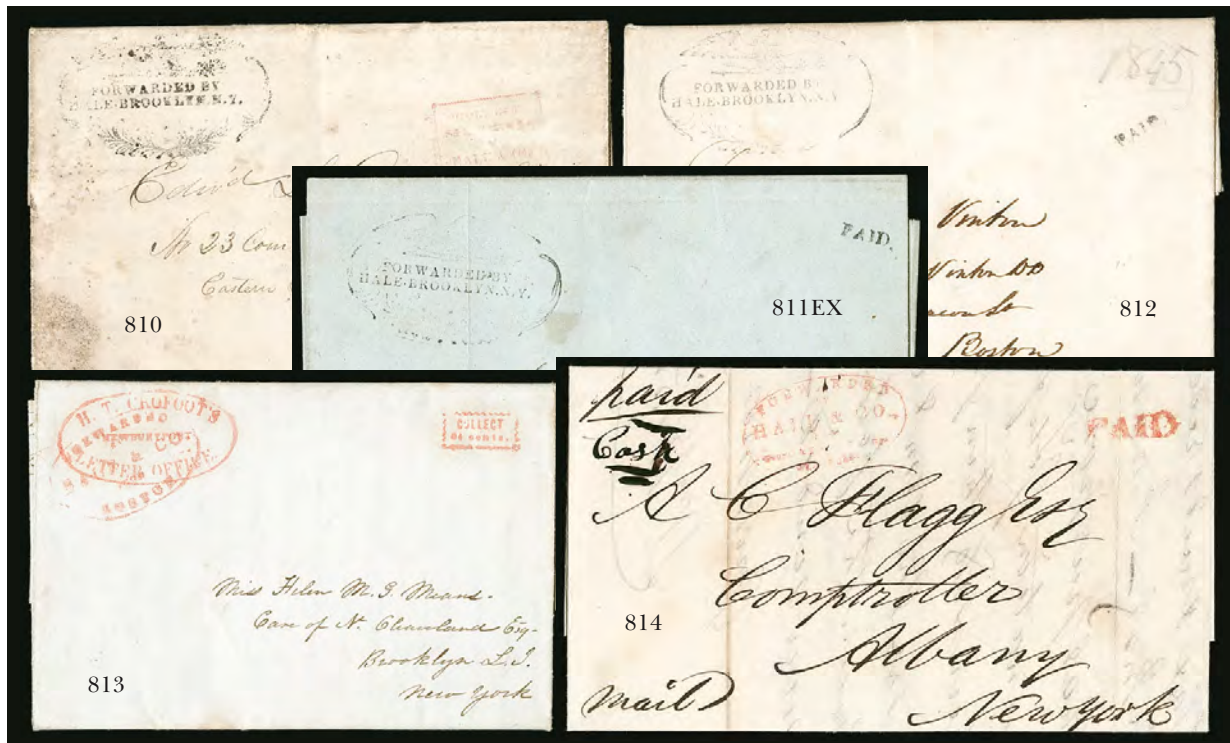 FORWARDED BY
HALE-BROOKLYN.N.Y.
Edw'd
No 23 Com
Eastern
810
FORWARDED BY
HALE-BROOKLYN.N.Y.
1845
PAID.
Vinton
Vinton DD
Boston
812
FORWARDED BY
HALE-BROOKLYN.N.Y.
PAID.
811EX
H. T. CROFOOT'S
NEWBURYPORT
&
LETTER OFFICE.
BOSTON
COLLECT
six cents.
Miss Helen M. G. Means.
Care of N. Cleaveland Esq.
Brooklyn L.I.
New York
813
paid
Cask
FORWARDED
HALE & CO
PAID
A C Flagg Esq
Comptroller
Albany
New York
mail
814